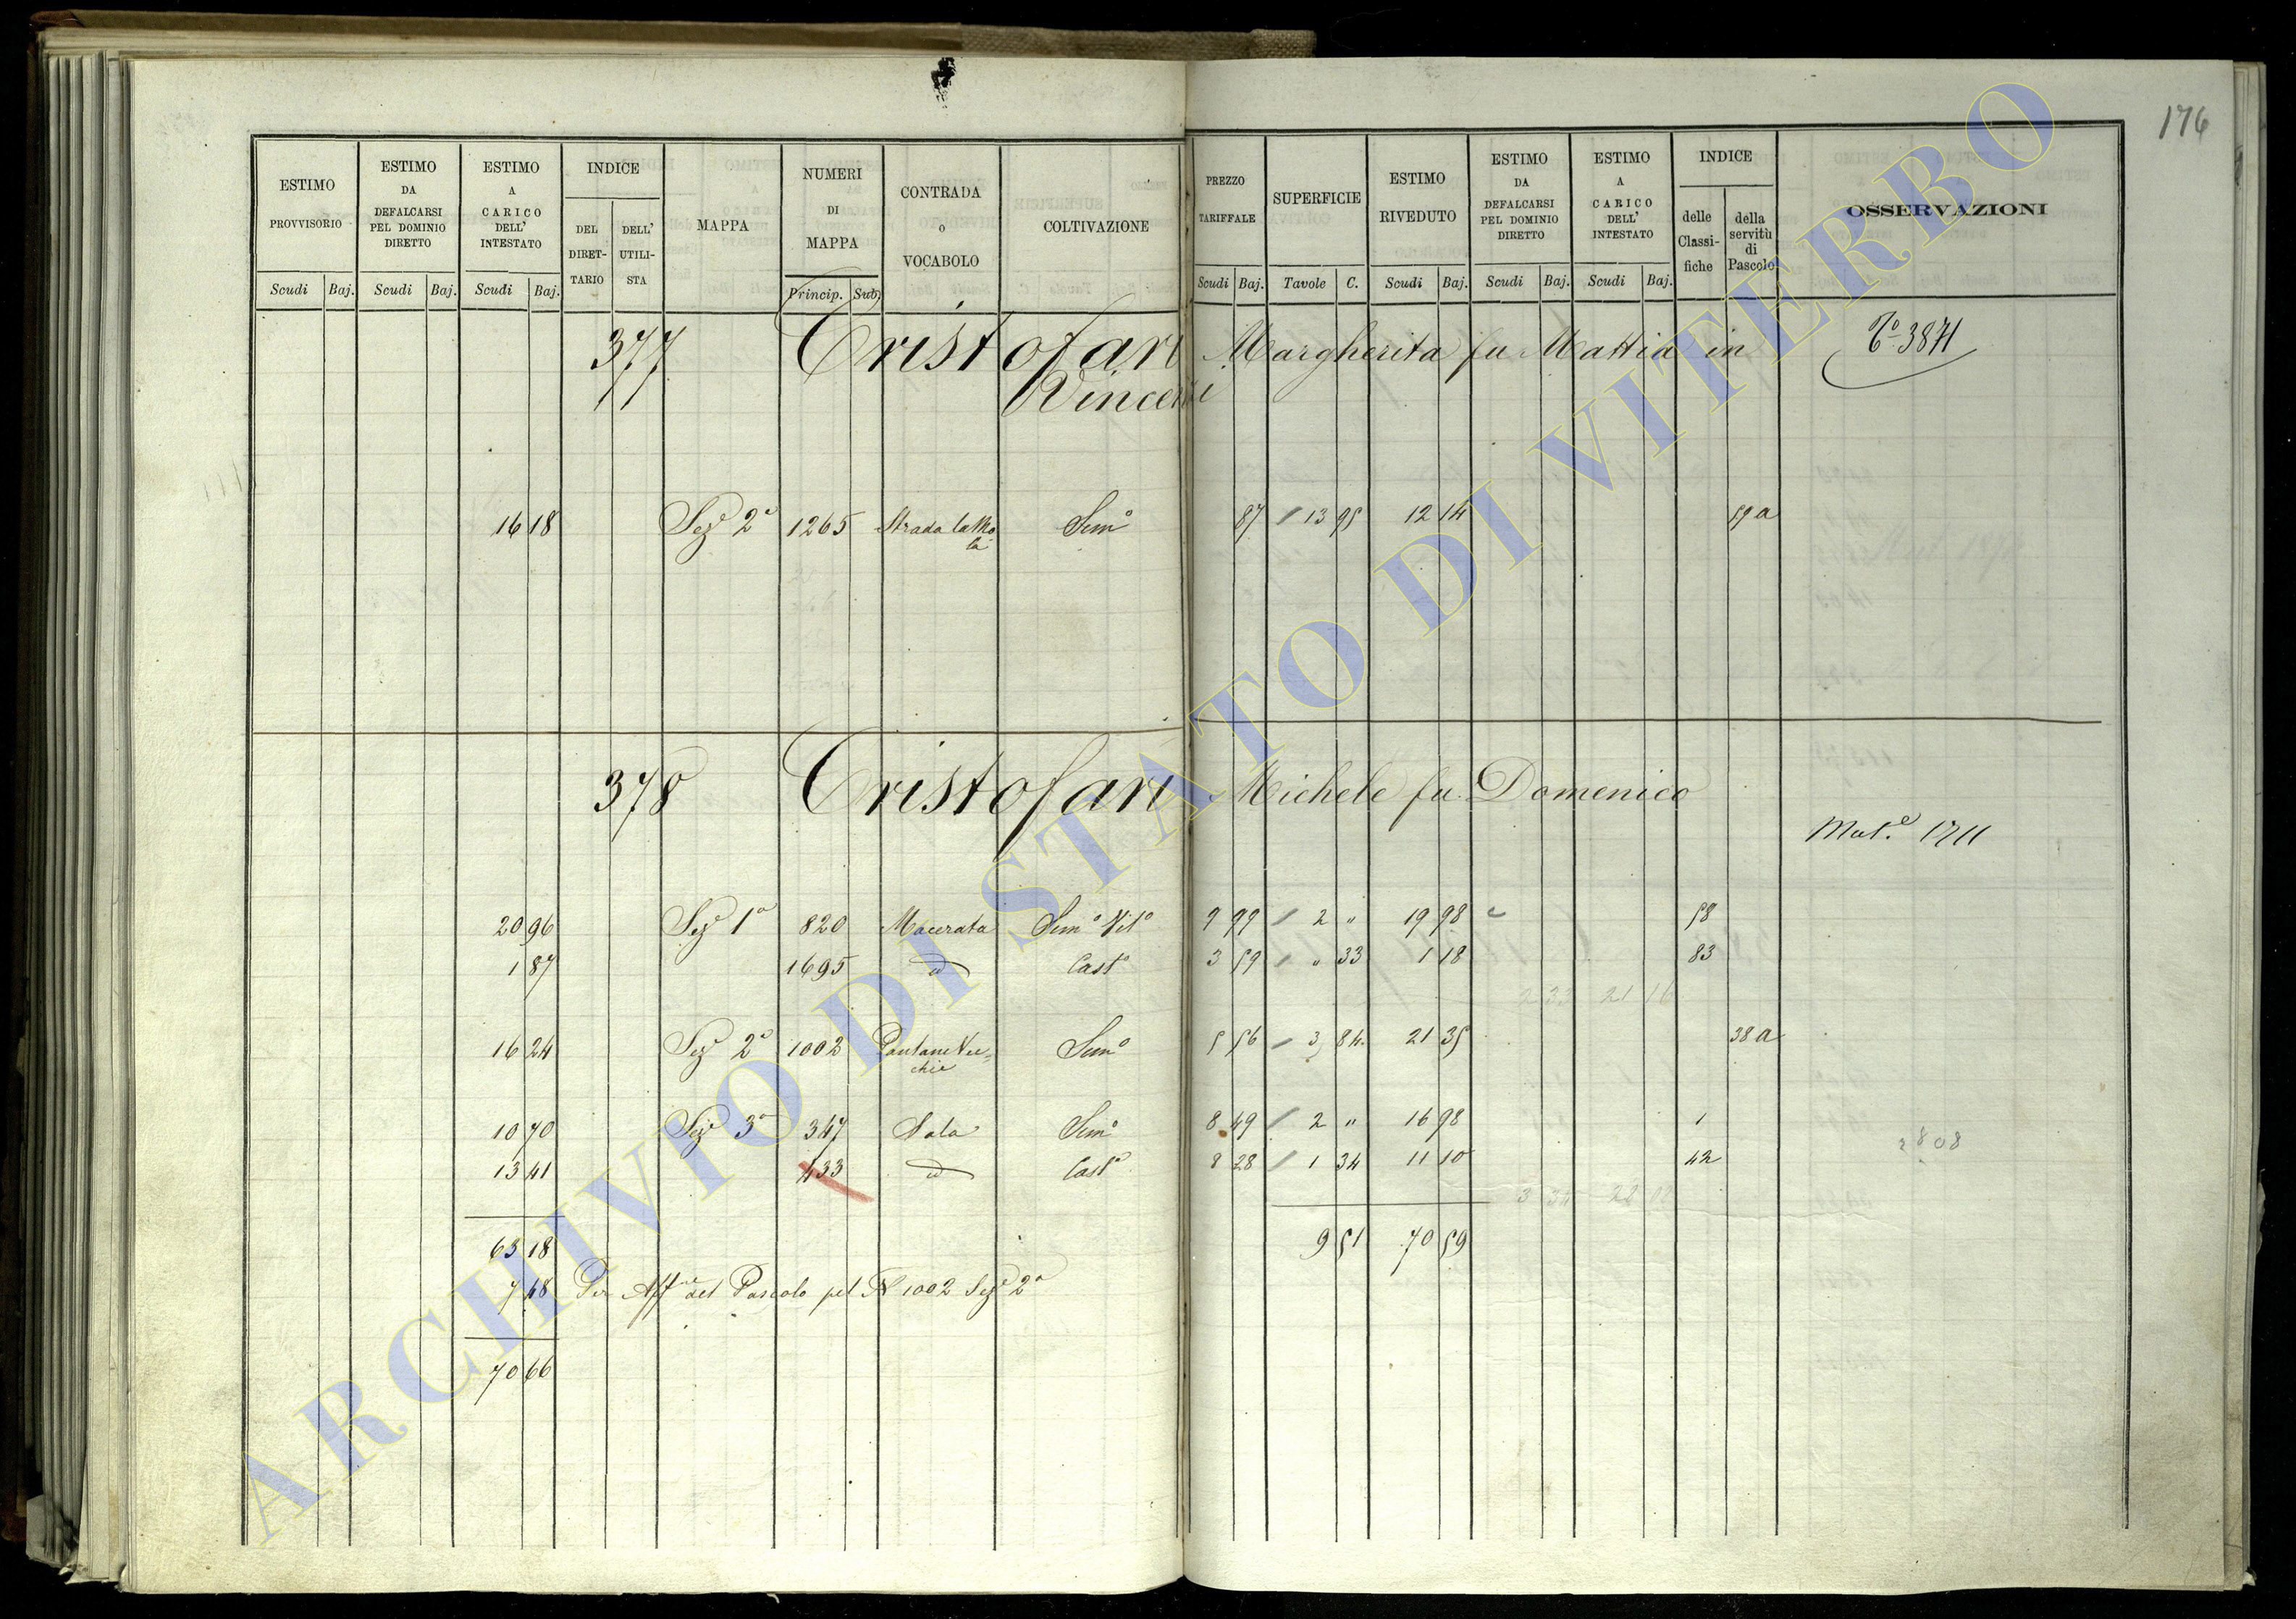 176
ESTIMO PROVVISORIO Scudi Baj.
ESTIMO DA DEFALCARSI PEL DOMINIO DIRETTO Scudi Baj.
ESTIMO A CARICO DELL' INTESTATO Scudi Baj.
INDICE DEL DIRET-TARIO DELL' UTILI-STA
MAPPA
NUMERI DI MAPPA Princip. Sub.
CONTRADA o VOCABOLO
COLTIVAZIONE
PREZZO TARIFFALE Scudi Baj.
SUPERFICIE Tavole C.
ESTIMO RIVEDUTO Scudi Baj.
ESTIMO DA DEFALCARSI PEL DOMINIO DIRETTO Scudi Baj.
ESTIMO A CARICO DELL' INTESTATO Scudi Baj.
INDICE delle Classi-fiche della servitù di Pascolo
OSSERVAZIONI
377 Cristofari Margherita fu Mattia in
Vincenti
16 18 Seze 2a 1265 Strada la Mo Semo 87 13 95 12 14 59 a
la
378 Cristofari Michele fu Domenico
Mut.e 1711
20 96 Seze 1a 820 Macerata Semo Vito 9 99 2 " 19 98 58
1 87 1695 id Casto 3 59 " 33 1 18 83
2 33 21 16
16 24 Seze 2a 1002 Pantane Vec= Semo 5 56 3 84 21 35 38 a
chie
10 70 Seze 3a 347 Sala Semo 8 49 2 " 16 98 1
13 41 433 id Casto 8 28 1 34 11 10 42
63 18 9 51 70 59
7 48 Per Affne del Pascolo pel N 1002 Seze 2a
70 66
ARCHIVIO DI STATO DI VITERBO